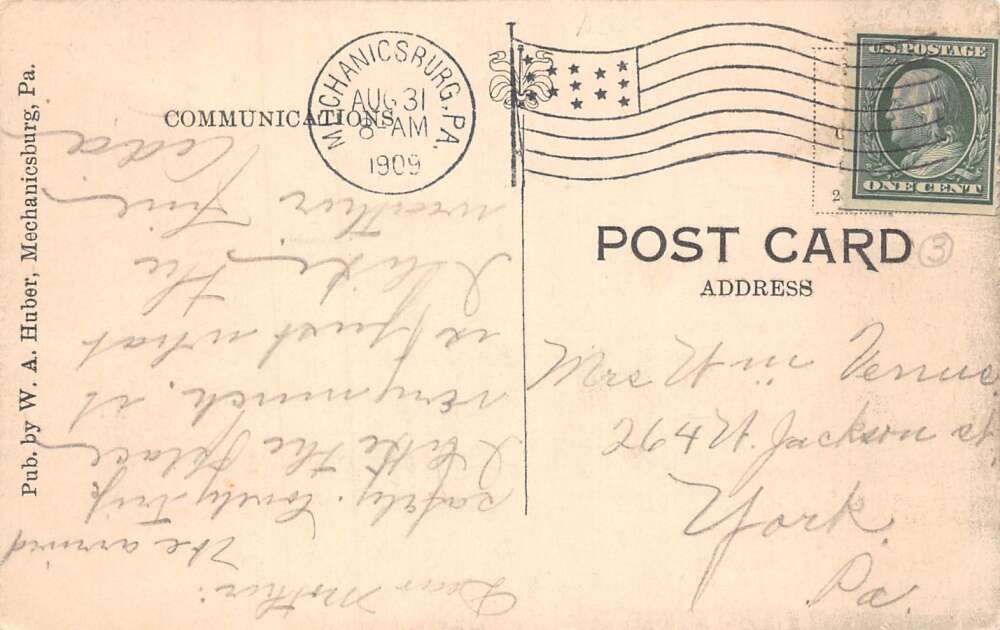 Pub. by W. A. Huber, Mechanicsburg, Pa.
COMMUNICATIONS
MECHANICSBURG, PA.
AUG 31
8-AM
1909
U.S. POSTAGE
ONE CENT
POST CARD
3
ADDRESS
Mrs Wm Venus
264 W. Jackson St
York
Pa.
Dear Mother:
We arrived
safely. lovely trip
I like the place
very much. it
is just what
I like, the
weather fine